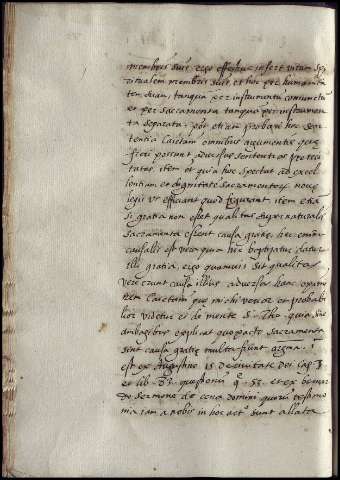 membris suis ergo effectiue infert vitam spi
ritualem membris suis et hoc per humanita
tem suam, tanquam per instrumentum coniunctū
et per sacramenta tanquam per instrumen
ta separata. potest etiam probari hec sen
tentia Caietani omnibus argumentis que
fieri possunt aduersus sententias
item et quia hoc spectat ad excel
lentiam et dignitatē sacramentorū noue
legis ut efficiant quod figurant. item etiā
si gratia non esset qualitas supernaturalis
sacramenta essent causa gratie, hec enim
causalis est vera quia hic baptizatus datur
illi gratia. ergo quamuis sit qualitas
vere erunt causa illius. aduersus hanc opinio
nem Caietani que michi verior et probabi
lior videtur et de mente S. Tho. quia sic
explicat quo pacto sacramenta
sint causa gratie multa sunt argum. 1
est ex Augustino 15 de ciuitate dei cap.
et lib. 83 questionū q. 53 et ex bernar
do sermone de cena domini quorū testimo
nia iam a nobis in hoc act. sunt allata